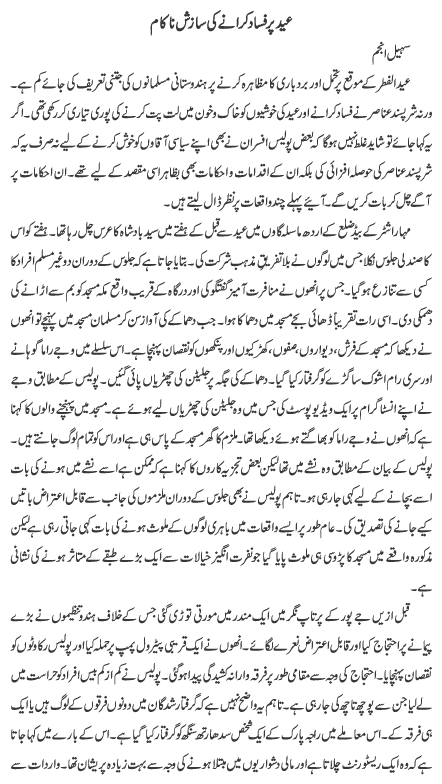 عید پر فساد کرانے کی سازش ناکام
سہیل انجم
عید الفطر کے موقع پر تحمل اور بردباری کا مظاہرہ کرنے پر ہندوستانی مسلمانوں کی جتنی تعریف کی جائے کم ہے۔
ورنہ شرپسند عناصر نے فساد کرانے اور عید کی خوشیوں کو خاک و خون میں لت پت کرنے کی پوری تیاری کر رکھی تھی۔ اگر
یہ کہا جائے تو شاید غلط نہیں ہوگا کہ بعض پولیس افسران نے بھی اپنے سیاسی آقاؤں کو خوش کرنے کے لیے نہ صرف یہ کہ
شرپسند عناصر کی حوصلہ افزائی کی بلکہ ان کے اقدامات و احکامات بھی بظاہر اسی مقصد کے لیے تھے۔ ان احکامات پر
آگے چل کر بات کریں گے۔ آئیے پہلے چند واقعات پر نظر ڈال لیتے ہیں۔
مہاراشٹر کے بیڈ ضلع کے اردھ ماسلہ گاوں میں عید سے قبل کے ہفتے میں سید بادشاہ کا عرس چل رہا تھا۔ ہفتے کو اس
کا صندلی جلوس نکلا جس میں لوگوں نے بلا تفریق مذہب شرکت کی۔ بتایا جاتا ہے کہ جلوس کے دوران دو غیر مسلم افراد کا
کسی سے تنازع ہو گیا۔ جس پر انھوں نے منافرت آمیز گفتگو کی اور درگاہ کے قریب واقع مکہ مسجد کو بم سے اڑانے کی
دھمکی دی۔ اسی رات تقریباً ڈھائی بجے مسجد میں دھماکا ہوا۔ جب دھماکے کی آواز سن کر مسلمان مسجد میں پہنچے تو انھوں
نے دیکھا کہ مسجد کے فرش، دیواروں، صفوں، کھڑکیوں اور پنکھوں کو نقصان پہنچا ہے۔ اس سلسلے میں وجے راما گوہانے
اور سری رام اشوک ساگڑے کو گرفتار کیا گیا۔ دھماکے کی جگہ پر جلیٹن کی چھڑیاں پائی گئیں۔ پولیس کے مطابق وجے
نے اپنے انسٹا گرام پر ایک ویڈیو پوسٹ کی جس میں وہ جلیٹن کی چھڑیاں لیے ہوئے ہے۔ مسجد میں پہنچنے والوں کا کہنا
ہے کہ انھوں نے وجے راما کو بھاگتے ہوئے دیکھا تھا۔ ملزم کا گھر مسجد کے پاس ہی ہے اور اس کو تمام لوگ جانتے ہیں۔
پولیس کے بیان کے مطابق وہ نشے میں تھا لیکن بعض تجزیہ کاروں کا کہنا ہے کہ ممکن ہے اسے نشے میں ہونے کی بات
اسے بچانے کے لیے کہی جا رہی ہو۔ تاہم پولیس نے بھی جلوس کے دوران ملزموں کی جانب سے قابل اعتراض باتیں
کیے جانے کی تصدیق کی۔ عام طور پر ایسے واقعات میں باہری لوگوں کے ملوث ہونے کی بات کہی جاتی رہی ہے لیکن
مذکورہ واقعے میں مسجد کا پڑوسی ہی ملوث پایا گیا جو نفرت انگیز خیالات سے ایک بڑے طبقے کے متاثر ہونے کی نشانی
ہے۔
قبل ازیں جے پور کے پرتاپ نگر میں ایک مندر میں مورتی توڑی گئی جس کے خلاف ہندو تنظیموں نے بڑے
پیمانے پر احتجاج کیا اور قابل اعتراض نعرے لگائے۔ انھوں نے ایک قریبی پیٹرول پمپ پر حملہ کیا اور پولیس رکاوٹوں کو
نقصان پہنچایا۔ احتجاج کی وجہ سے مقامی طور پر فرقہ وارانہ کشیدگی پیدا ہو گئی۔ پولیس نے کم از کم بیس افراد کو حراست میں
لے لیا جن سے پوچھ تاچھ کی جا رہی ہے۔ تاہم یہ واضح نہیں ہے کہ گرفتار شدگان میں دونوں فرقوں کے لوگ ہیں یا ایک
ہی فرقے کے۔ اس معاملے میں راجہ پارک کے ایک شخص سدھارتھ سنگھ کو گرفتار کیا گیا ہے۔ اس کے بارے میں کہا جاتا
ہے کہ وہ ایک ریسٹورنٹ چلاتا ہے اور مالی دشواریوں میں مبتلا ہونے کی وجہ سے بہت زیادہ پریشان تھا۔ واردات سے